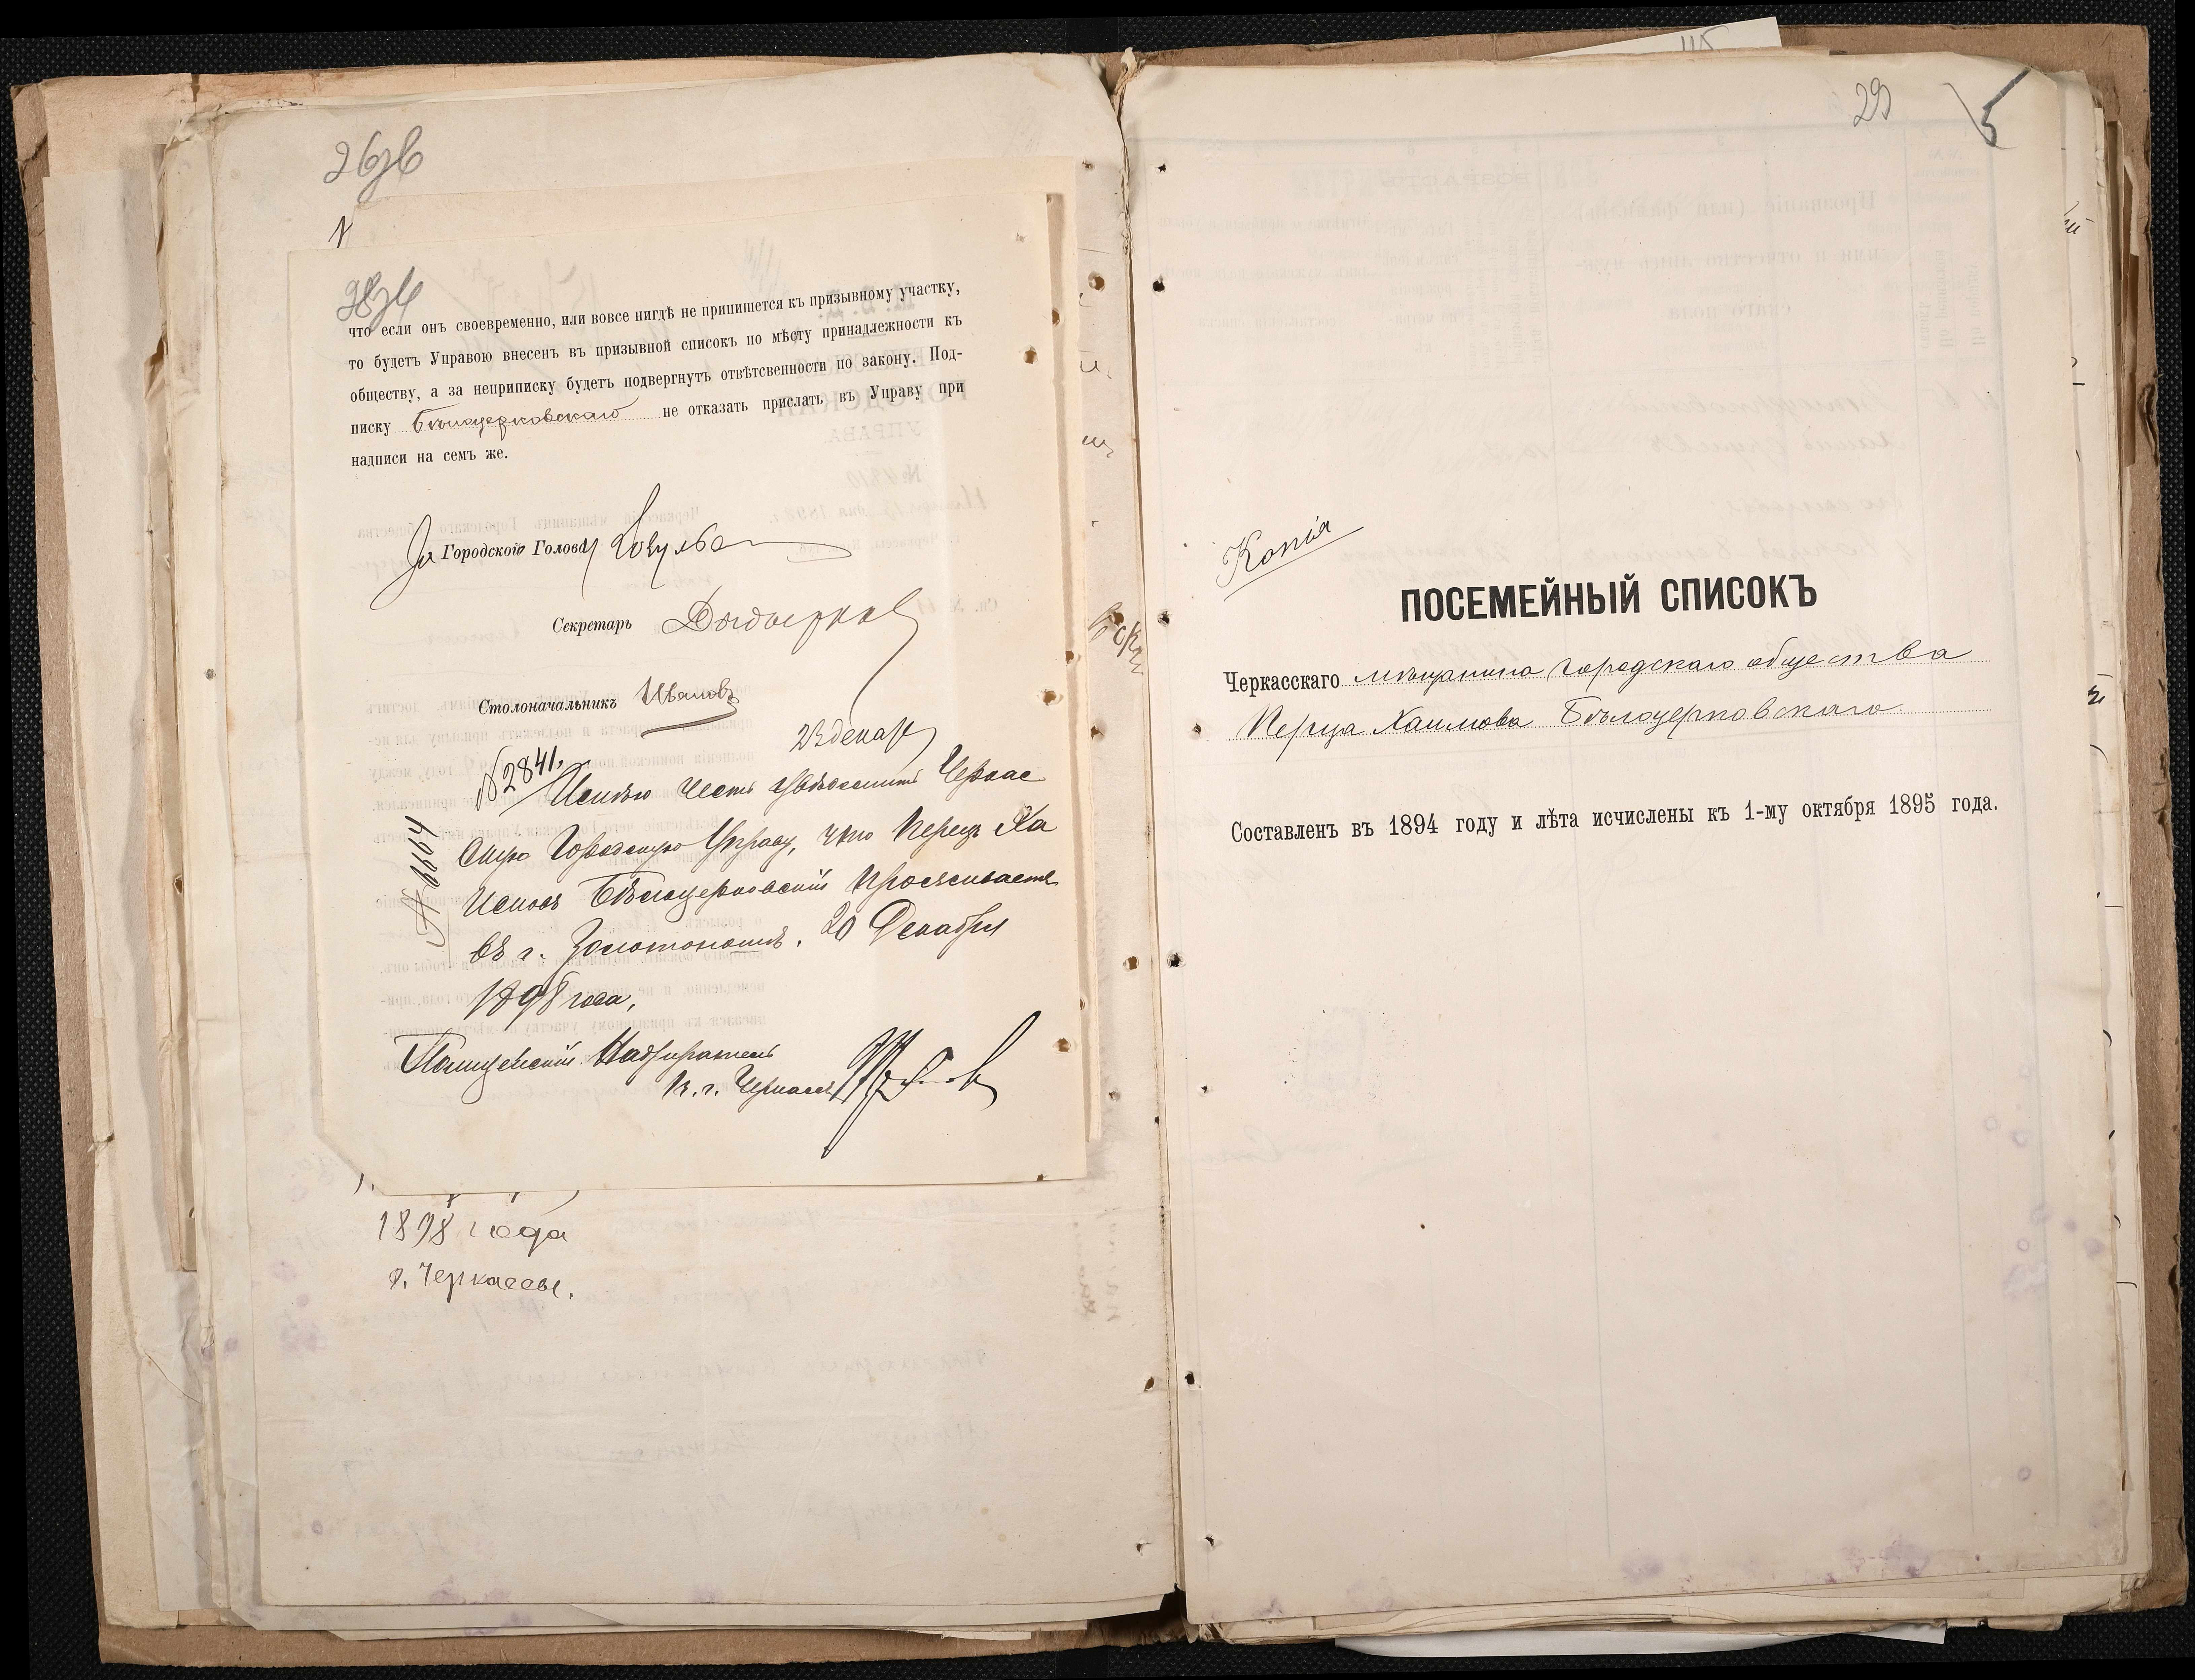 что если онъ своевременно, или вовсе нигдѣ не припишется къ призывному участку,
то будетъ Управою внесенъ въ призывной списокъ по мѣсту принадлежности къ
обществу, а за неприписку будетъ подвергнутъ отвѣтсвенности по закону. Под-
писку Бѣлоцерковскаго не отказать прислать въ Управу при
надписи на семъ же.
За Городского Голову
Секретарь
Столоначальникъ Ивановъ
23 декабр
№ 2841.
Имѣю честь увѣдомить Черкас
скую Городскую Управу, что Перецъ Ха
имовъ Бѣлоцерковскій проживаетъ
въ г. Золотоношѣ, 20 Декабря
1898 года,
Полицейскій Надзиратель
г. Черкассъ
1898 года
г. Черкассы.
29
5
Копія
ПОСЕМЕЙНЫЙ СПИСОКЪ
Черкасскаго мѣщанина городскаго общества
Перца Хаимова Бѣлоцерковскаго
Составленъ въ 1894 году и лѣта исчислены къ 1-му октября 1895 года.